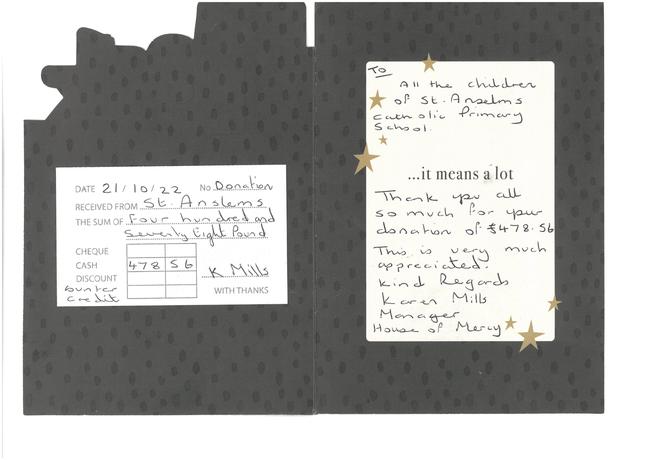 DATE 21/10/22 No Donation
RECEIVED FROM St. Anslems
THE SUM OF four hundred and
seventy Eight Pound
CHEQUE
CASH 478 56
DISCOUNT K Mills
credit WITH THANKS
To
All the children
of St. Anselms
Catholic Primary
School.
...it means a lot
Thank you all
so much for your
donation of £478.56
This is very much
appreciated.
Kind Regards
Karen Mills
Manager
House of Mercy